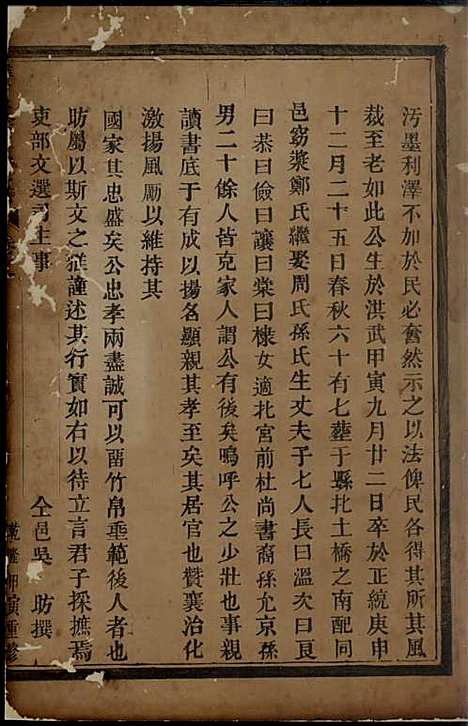 汚墨利澤不加於民必奮然示之以法俾民各得其所其風
裁至老如此公生於洪武甲寅九月廿二日卒於正統庚申
十二月二十五日春秋六十有七塟于縣北土橋之南配同
邑窈漿鄭氏繼娶周氏孫氏生丈夫子七人長曰溫次曰良
曰恭曰儉曰讓曰棠曰棣女適北宮前杜尚書裔孫允京孫
男二十餘人皆克家人謂公有後矣嗚呼公之少壯也事親
讀書底于有成以揚名顯親其孝至矣其居官也贊襄治化
激揚風勵以維持其
國家其忠盛矣公忠孝兩盡誠可以畱竹帛垂範後人者也
昉屬以斯文之雅謹述其行實如右以待立言君子採摭焉
吏部文選司主事　　　　　仝邑吳　昉撰